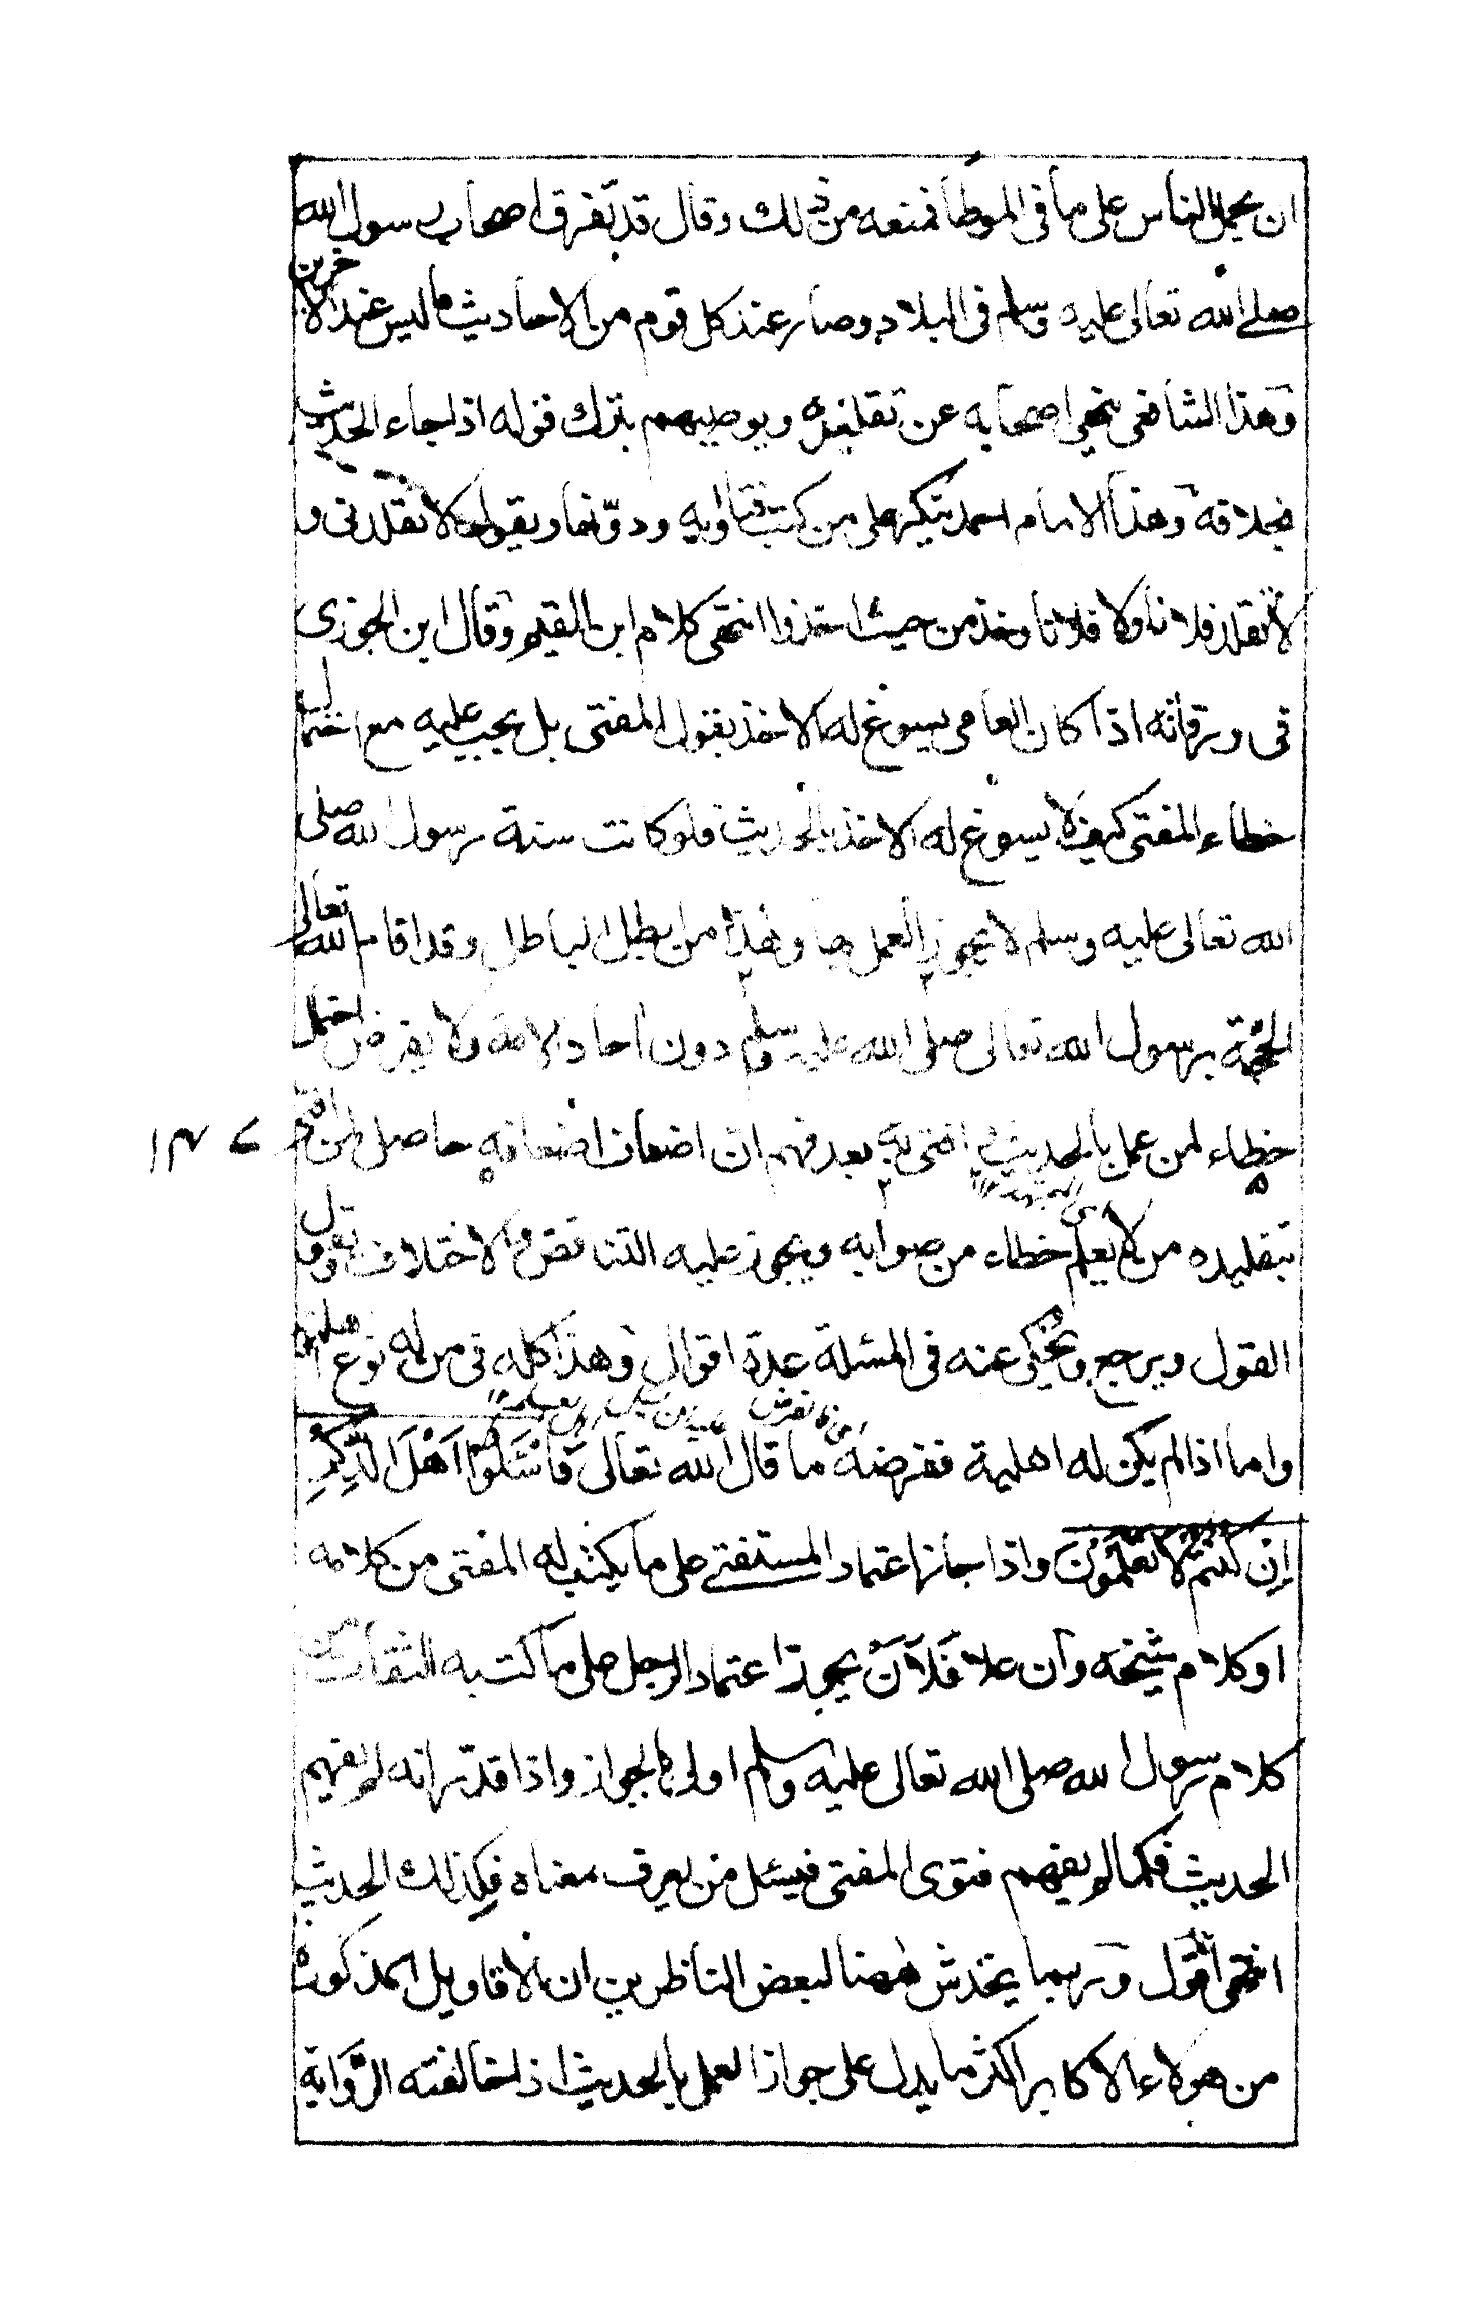 ان يحمل الناس على ما فى الموطأ فمنعه من ذلك وقال قد تفرق اصحاب رسول الله
صلى الله تعالى عليه وسلم فى البلاد وصار عند كل قوم من الاحاديث ما ليس عند الاخرين
وهذا الشافعى ينهى اصحابه عن تقليده ويوصيهم بترك قوله اذا جاء الحديث
بخلافه وهذا الامام احمد ينكر على من كتب فتاويه ودونها ويقول لا تقلدنى و
لا تقلد فلانا ولا فلانا وخذ من حيث اخذوا انتهى كلام ابن القيم وقال ابن الجوزى
فى ورقاته اذا كان العامى يسوغ له الاخذ بقول المفتى بل يجب عليه مع احتمال
خطاء المفتى كيف لا يسوغ له الاخذ بالحديث فلو كانت سنة رسول الله صلى
الله تعالى عليه وسلم لا يجوز العمل بها وهذا من ابطل الباطل وقد اقام الله تعالى
الحجة برسول الله تعالى صلى الله عليه وسلم دون احاد الامة ولا يفرض احتمال
خطاء لمن عمل بالحديث وافتى به بعد فهم ان اضعاف اضعافه حاصل لمن افتى
١٣٧
بتقليده من لا يعلم خطاءه من صوابه ويجوز عليه التناقض والاختلاف يقول
القول ويرجع ويحكى عنه فى المسئلة عدة اقوال وهذا كله فى من له نوع اهلية
واما اذا لم يكن له اهلية ففرضه ما قال الله تعالى فَاسْئَلُوْا اَهْلَ الذِّكْرِ
اِنْ كُنْتُمْ لَا تَعْلَمُوْنَ واذا جاز اعتماد المستفتى على ما يكتب له المفتى من كلامه
او كلام شيخه وان علا فَلَاَنْ يجوز اعتماد الرجل على ما كتبه الثقات من
كلام رسول الله صلى الله تعالى عليه وسلم اولى بالجواز واذا قدر انه لم يفهم
الحديث فكما لم يفهم فتوى المفتى فيسئل من يعرف معناه فكذلك الحديث
انتهى اقول وربما يخدش ههنا لبعض الناظرين ان الاقاويل المذكورة
من هولاء الاكابر اكثر ما يدل على جواز العمل بالحديث اذا خالفته الرواية